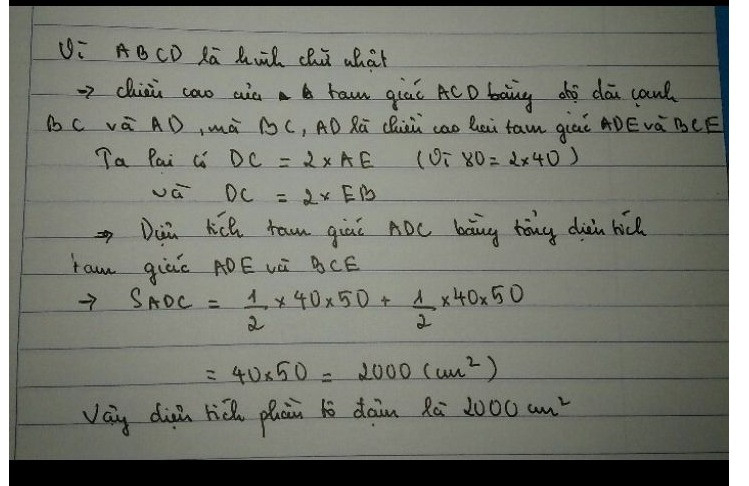 Vì ABCD là hình chữ nhật
→ chiều cao của tam giác ACD bằng độ dài cạnh
BC và AD, mà BC, AD là chiều cao hai tam giác ADE và BCE
Ta lại có DC = 2 × AE (Vì 80 = 2×40)
và DC = 2 × EB
⇒ Diện tích tam giác ADC bằng tổng diện tích
tam giác ADE và BCE
→ SADC = 1/2 × 40×50 + 1/2 ×40×50
= 40×50 = 2000 (cm²)
Vậy diện tích phần tô đậm là 2000 cm²